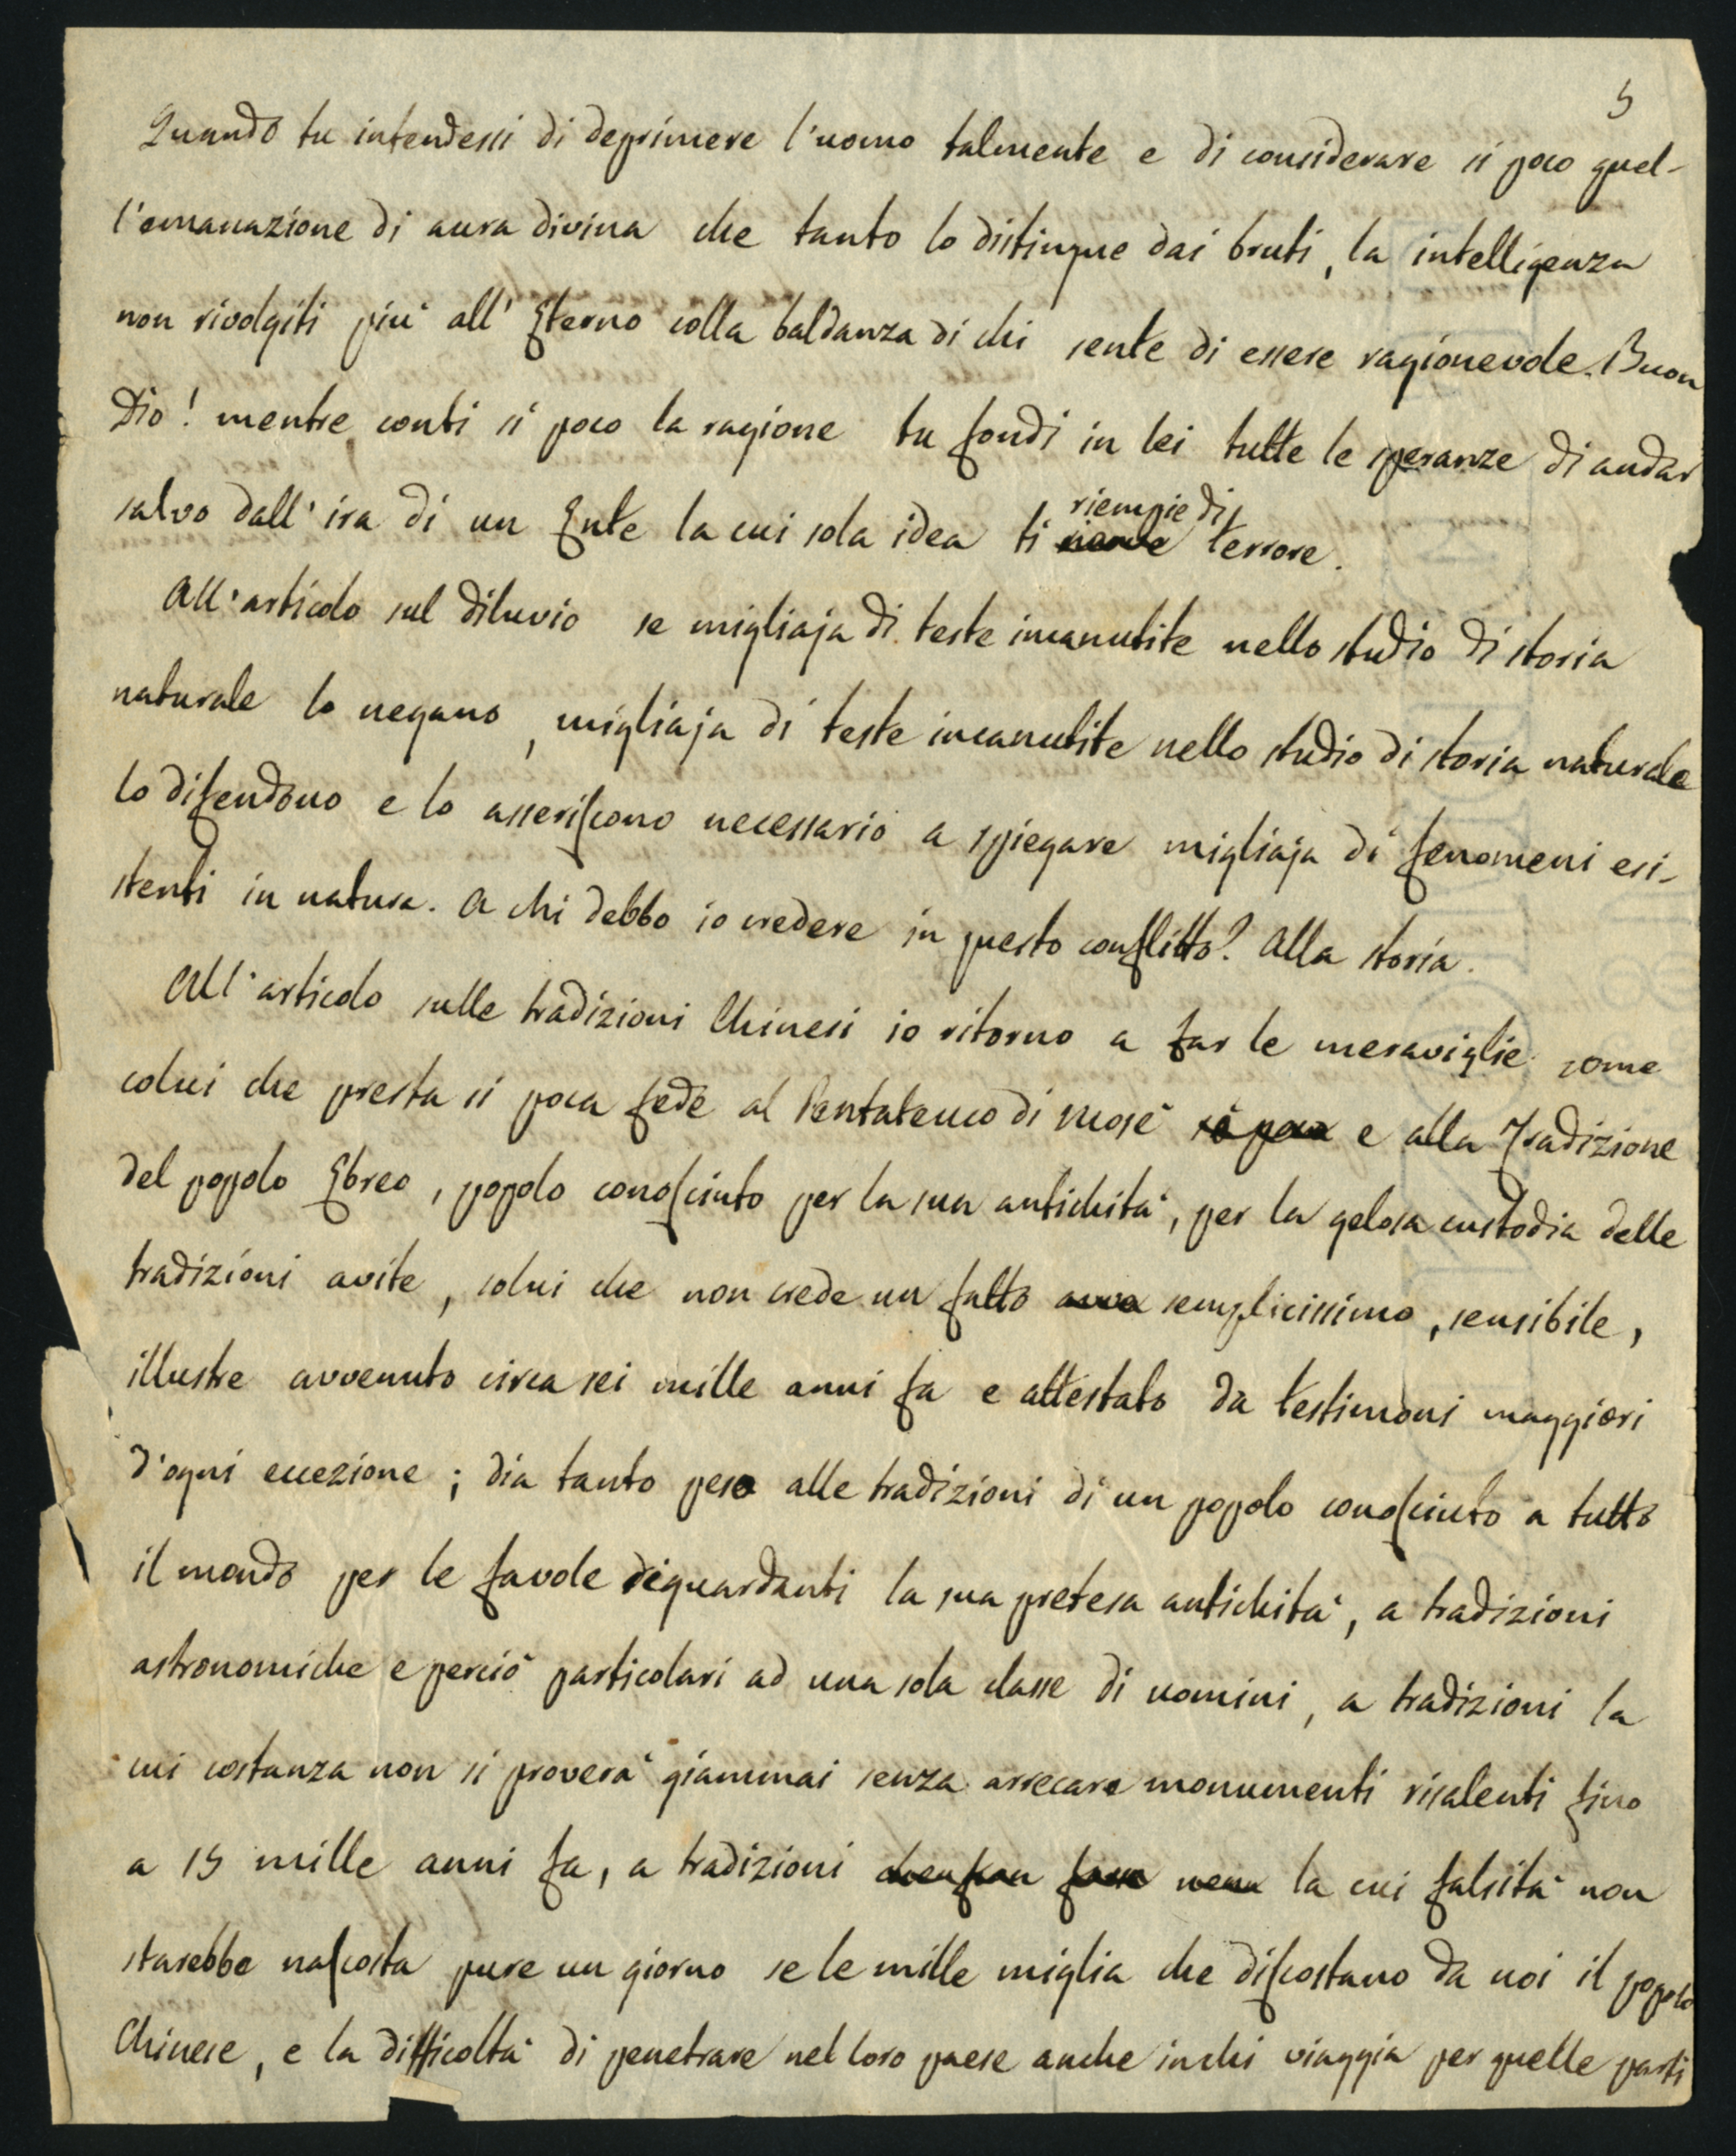 5
Quando tu intendessi di deprimere l'uomo talmente e di considerare sì poco quel-
l'emanazione di aura divina che tanto lo distingue dai bruti, la intelligenza
non rivolgiti più all'Eterno colla baldanza di chi sente di essere ragionevole. Buon
Dio! mentre conti sì poco la ragione tu fondi in lei tutte le speranze di andar
salvo dall'ira di un Ente la cui sola idea ti riempie di terrore.
All'articolo sul diluvio se migliaja di teste incanutite nello studio di storia
naturale lo negano, migliaja di teste incanutite nello studio di storia naturale
lo difendono e lo asseriscono necessario a spiegare migliaja di fenomeni esi-
stenti in natura. A chi debbo io credere in questo conflitto? Alla storia.
All'articolo sulle tradizioni Chinesi io ritorno a far le meraviglie come
colui che presta sì poca fede al Pentateuco di Mosè sì poca e alla Tradizione
del popolo Ebreo, popolo conosciuto per la sua antichità, per la gelosa custodia delle
tradizioni avite, colui che non crede un fatto avve semplicissimo, sensibile,
illustre avvenuto circa sei mille anni fa e attestato da testimoni maggiori
d'ogni eccezione; dia tanto peso alle tradizioni di un popolo conosciuto a tutto
il mondo per le favole riguardanti la sua pretesa antichità, a tradizioni
astronomiche e perciò particolari ad una sola classe di uomini, a tradizioni la
cui costanza non si proverà giammai senza arrecare monumenti risalenti fino
a 15 mille anni fa, a tradizioni la cui falsità non
starebbe nascosta pure un giorno se le mille miglia che discostano da noi il popolo
Chinese, e la difficoltà di penetrare nel loro paese anche in chi viaggia per quelle parti